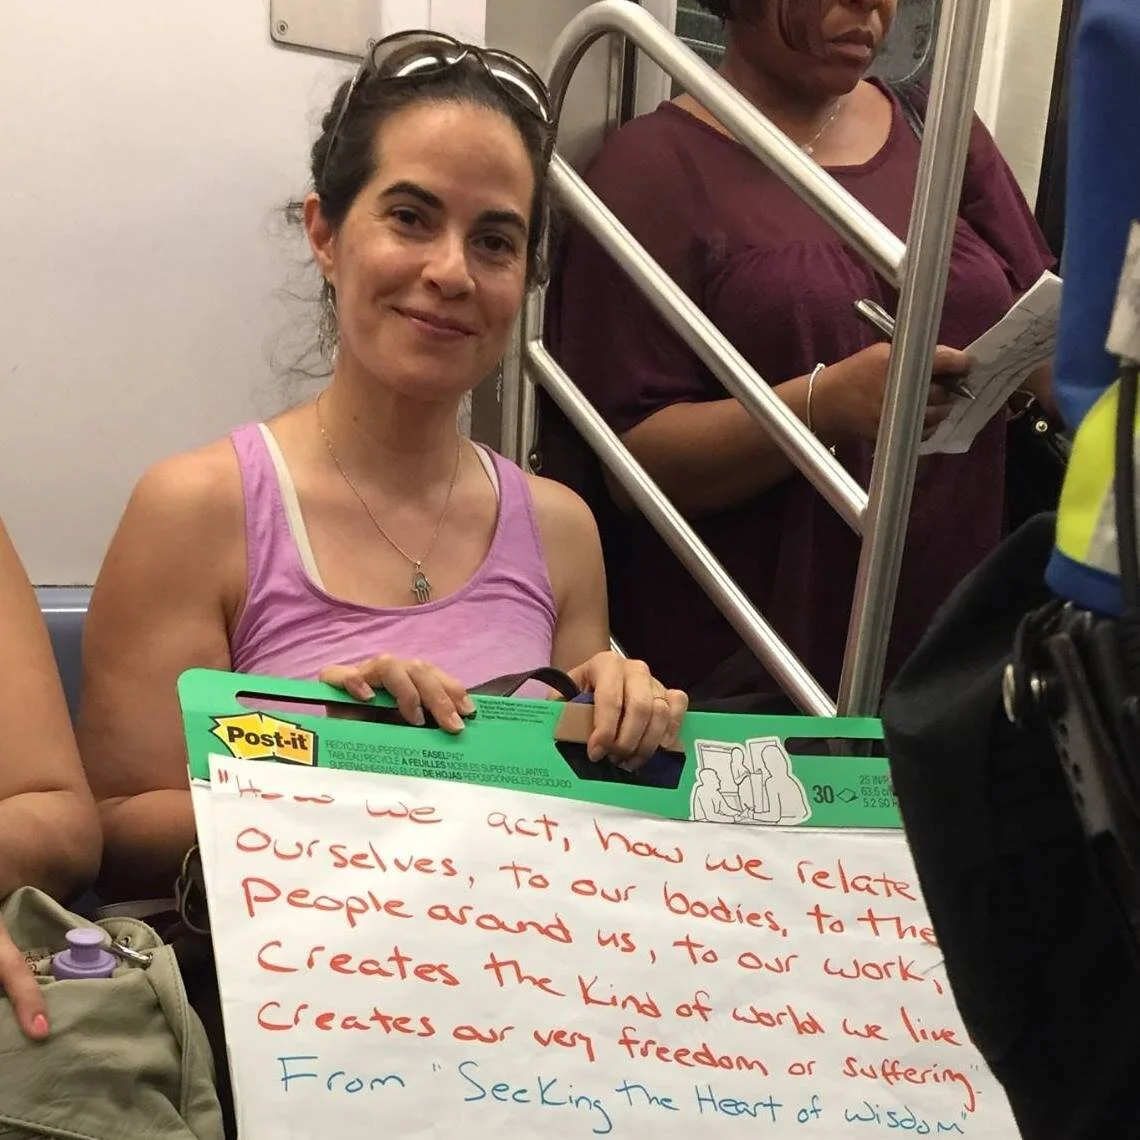 Post-it
RECYCLED SUPERSTICKY EASEL PAD
TABLEAU RECYCLÉ À FEUILLES MOBILES SUPER COLLANTES
SUPERADHESIVAS BLOC DE HOJAS REPOSICIONABLES RECICLADO
30
25 IN
63.5 c
5.2 SQ
"How we act, how we relate
Ourselves, to our bodies, to the
People around us, to our work,
Creates the kind of world we live
Creates our very freedom or suffering."
From "Seeking the Heart of Wisdom"